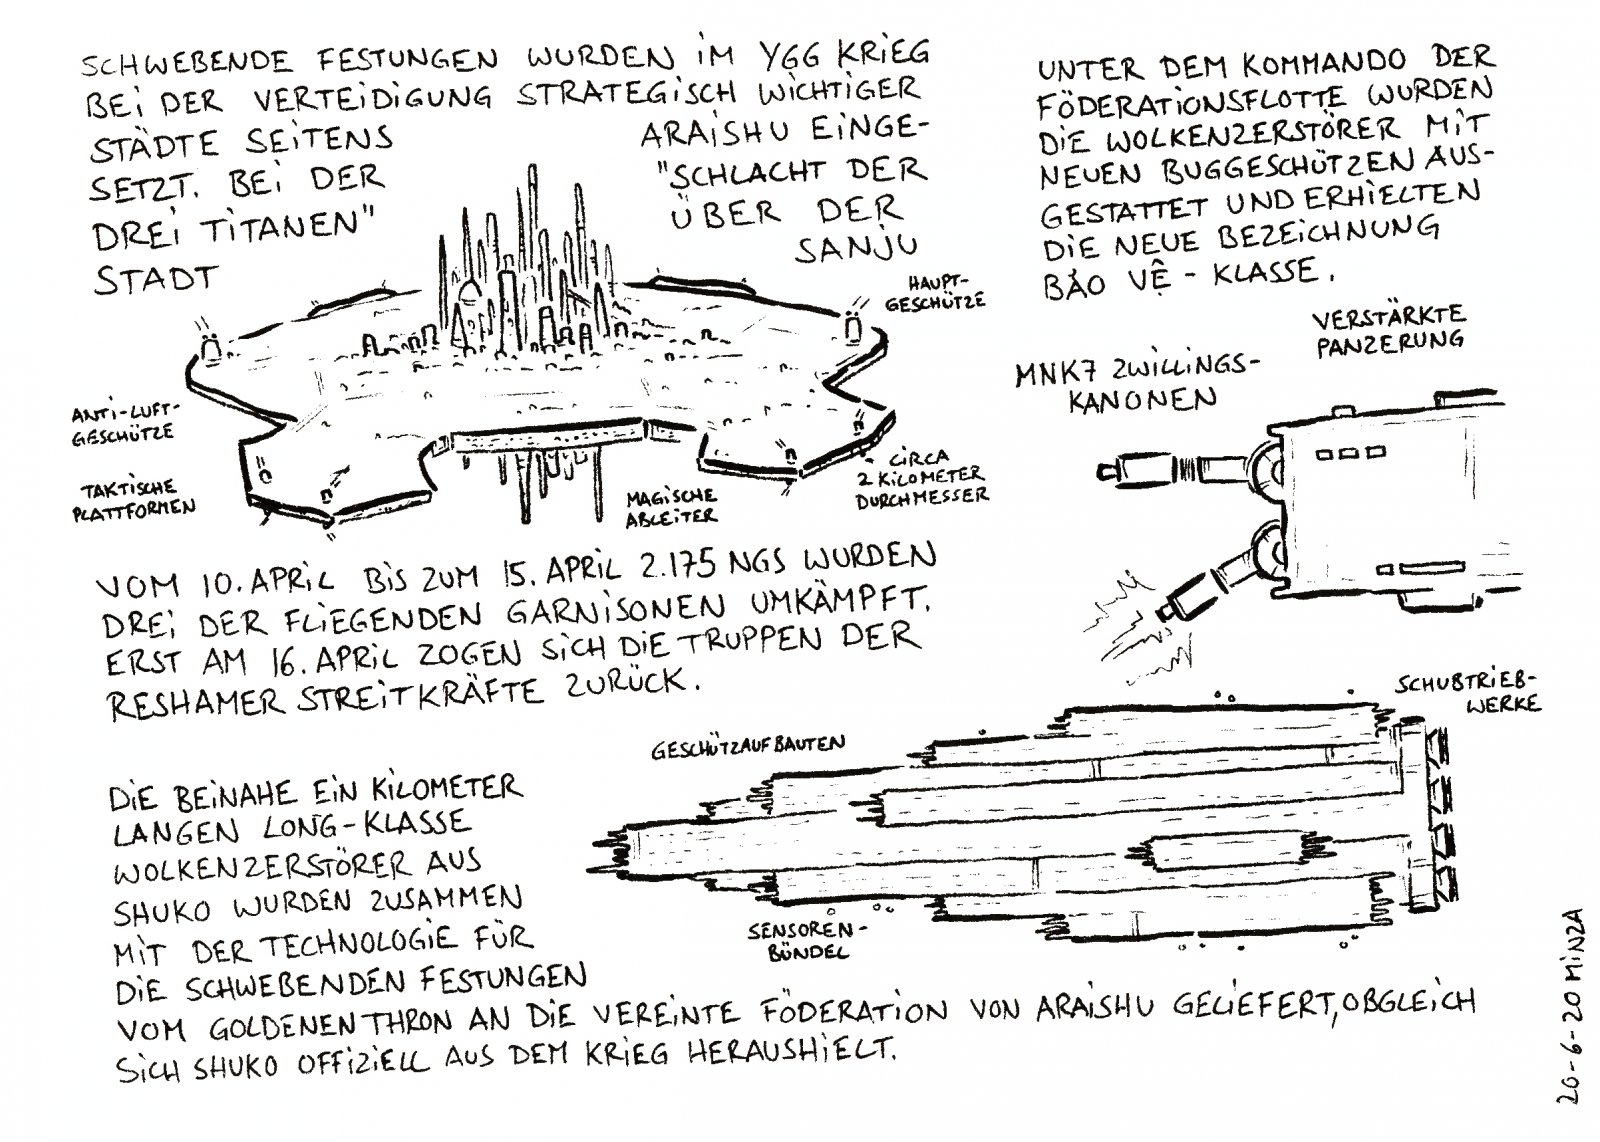 SCHWEBENDE FESTUNGEN WURDEN IM YGG KRIEG
BEI DER VERTEIDIGUNG STRATEGISCH WICHTIGER
STÄDTE SEITENS ARAISHU EINGE-
SETZT. BEI DER "SCHLACHT DER
DREI TITANEN" ÜBER DER
STADT SANJU
HAUPT-
GESCHÜTZE
ANTI-LUFT-
GESCHÜTZE
TAKTISCHE
PLATTFORMEN
MAGISCHE
ABLEITER
CIRCA
2 KILOMETER
DURCHMESSER
VOM 10. APRIL BIS ZUM 15. APRIL 2.175 NGS WURDEN
DREI DER FLIEGENDEN GARNISONEN UMKÄMPFT.
ERST AM 16. APRIL ZOGEN SICH DIE TRUPPEN DER
RESHAMER STREITKRÄFTE ZURÜCK.
UNTER DEM KOMMANDO DER
FÖDERATIONSFLOTTE WURDEN
DIE WOLKENZERSTÖRER MIT
NEUEN BUGGESCHÜTZEN AUS-
GESTATTET UND ERHIELTEN
DIE NEUE BEZEICHNUNG
BẢO VỆ - KLASSE.
VERSTÄRKTE
PANZERUNG
MNK7 ZWILLINGS-
KANONEN
SCHUBTRIEB-
WERKE
GESCHÜTZAUFBAUTEN
SENSOREN-
BÜNDEL
DIE BEINAHE EIN KILOMETER
LANGEN LONG-KLASSE
WOLKENZERSTÖRER AUS
SHUKO WURDEN ZUSAMMEN
MIT DER TECHNOLOGIE FÜR
DIE SCHWEBENDEN FESTUNGEN
VOM GOLDENEN THRON AN DIE VEREINTE FÖDERATION VON ARAISHU GELIEFERT, OBGLEICH
SICH SHUKO OFFIZIELL AUS DEM KRIEG HERAUSHIELT.
20-6-20 MINZA